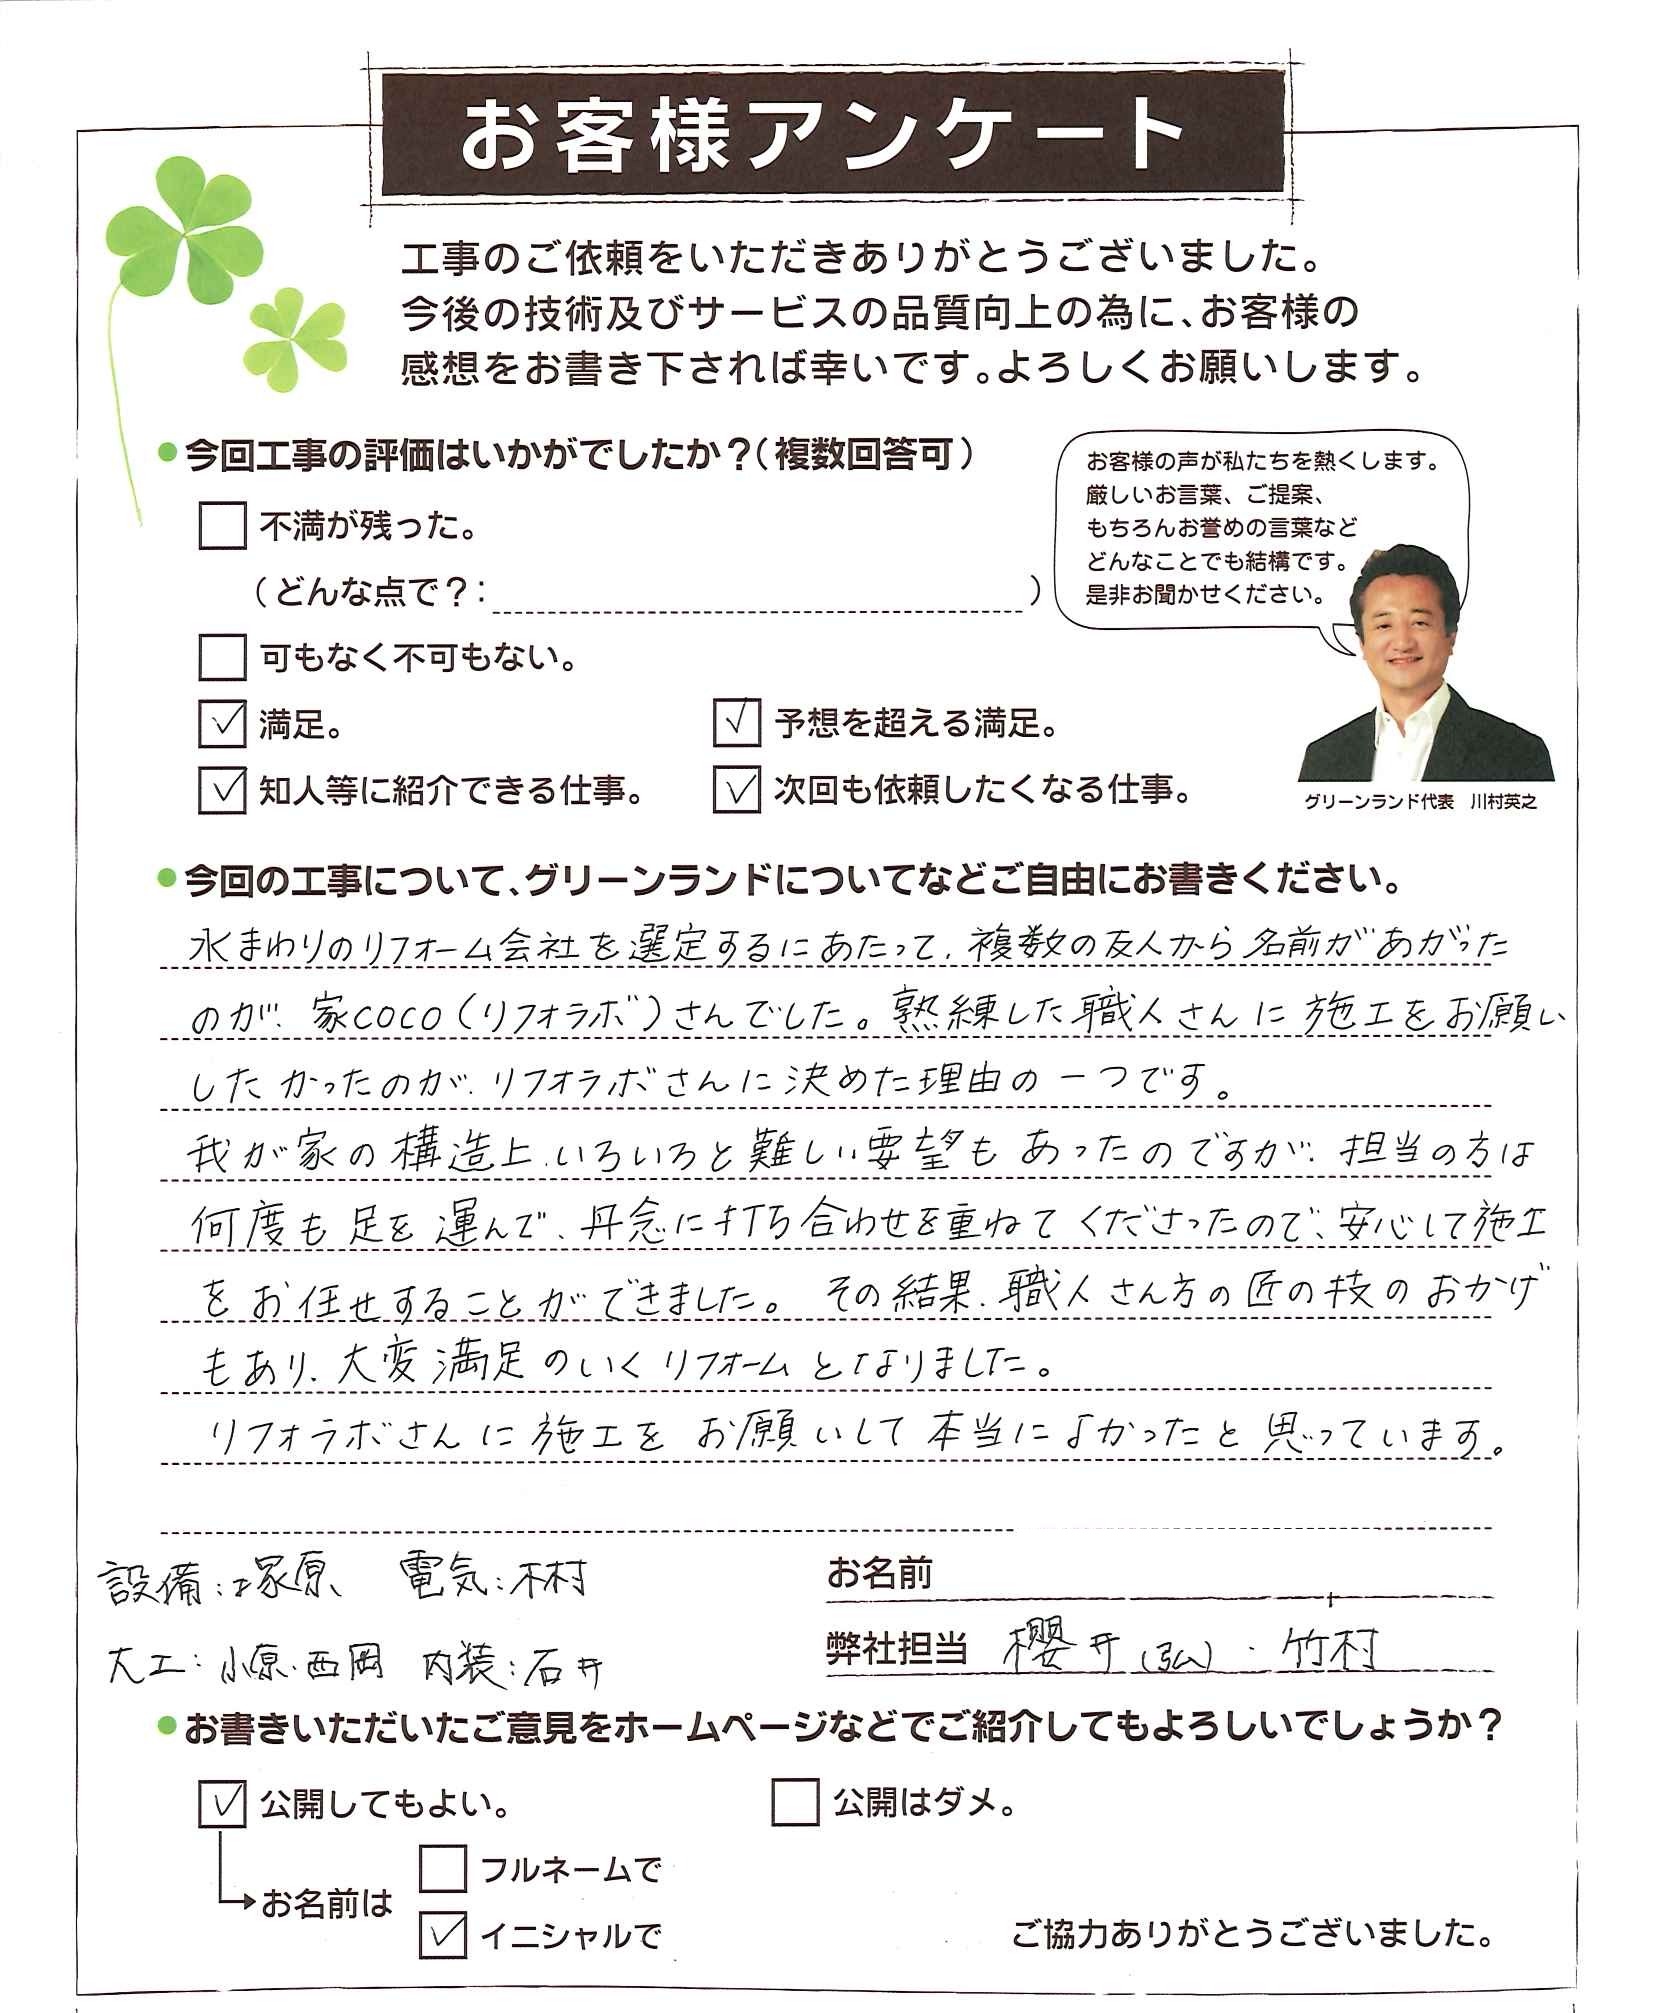 お客様アンケート
工事のご依頼をいただきありがとうございました。
今後の技術及びサービスの品質向上の為に、お客様の
感想をお書き下されば幸いです。よろしくお願いします。
●今回工事の評価はいかがでしたか？（複数回答可）
不満が残った。
（どんな点で？：　）
可もなく不可もない。
☑満足。　☑予想を超える満足。
☑知人等に紹介できる仕事。　☑次回も依頼したくなる仕事。
お客様の声が私たちを熱くします。
厳しいお言葉、ご提案、
もちろんお誉めの言葉など
どんなことでも結構です。
是非お聞かせください。
グリーンランド代表　川村英之
●今回の工事について、グリーンランドについてなどご自由にお書きください。
水まわりのリフォーム会社を選定するにあたって、複数の友人から名前があがった
のが、家coco（リフォラボ）さんでした。熟練した職人さんに施工をお願い
したかったのが、リフォラボさんに決めた理由の一つです。
我が家の構造上、いろいろと難しい要望もあったのですが、担当の方は
何度も足を運んで、丹念に打ち合わせを重ねてくださったので、安心して施工
をお任せすることができました。その結果、職人さん方の匠の技のおかげ
もあり、大変満足のいくリフォームとなりました。
リフォラボさんに施工をお願いして本当によかったと思っています。
設備：塚原、　電気：木村
大工：小原・西岡　内装：石井
お名前
弊社担当　櫻井（弘）・竹村
●お書きいただいたご意見をホームページなどでご紹介してもよろしいでしょうか？
☑公開してもよい。　□公開はダメ。
→お名前は
□フルネームで
☑イニシャルで
ご協力ありがとうございました。